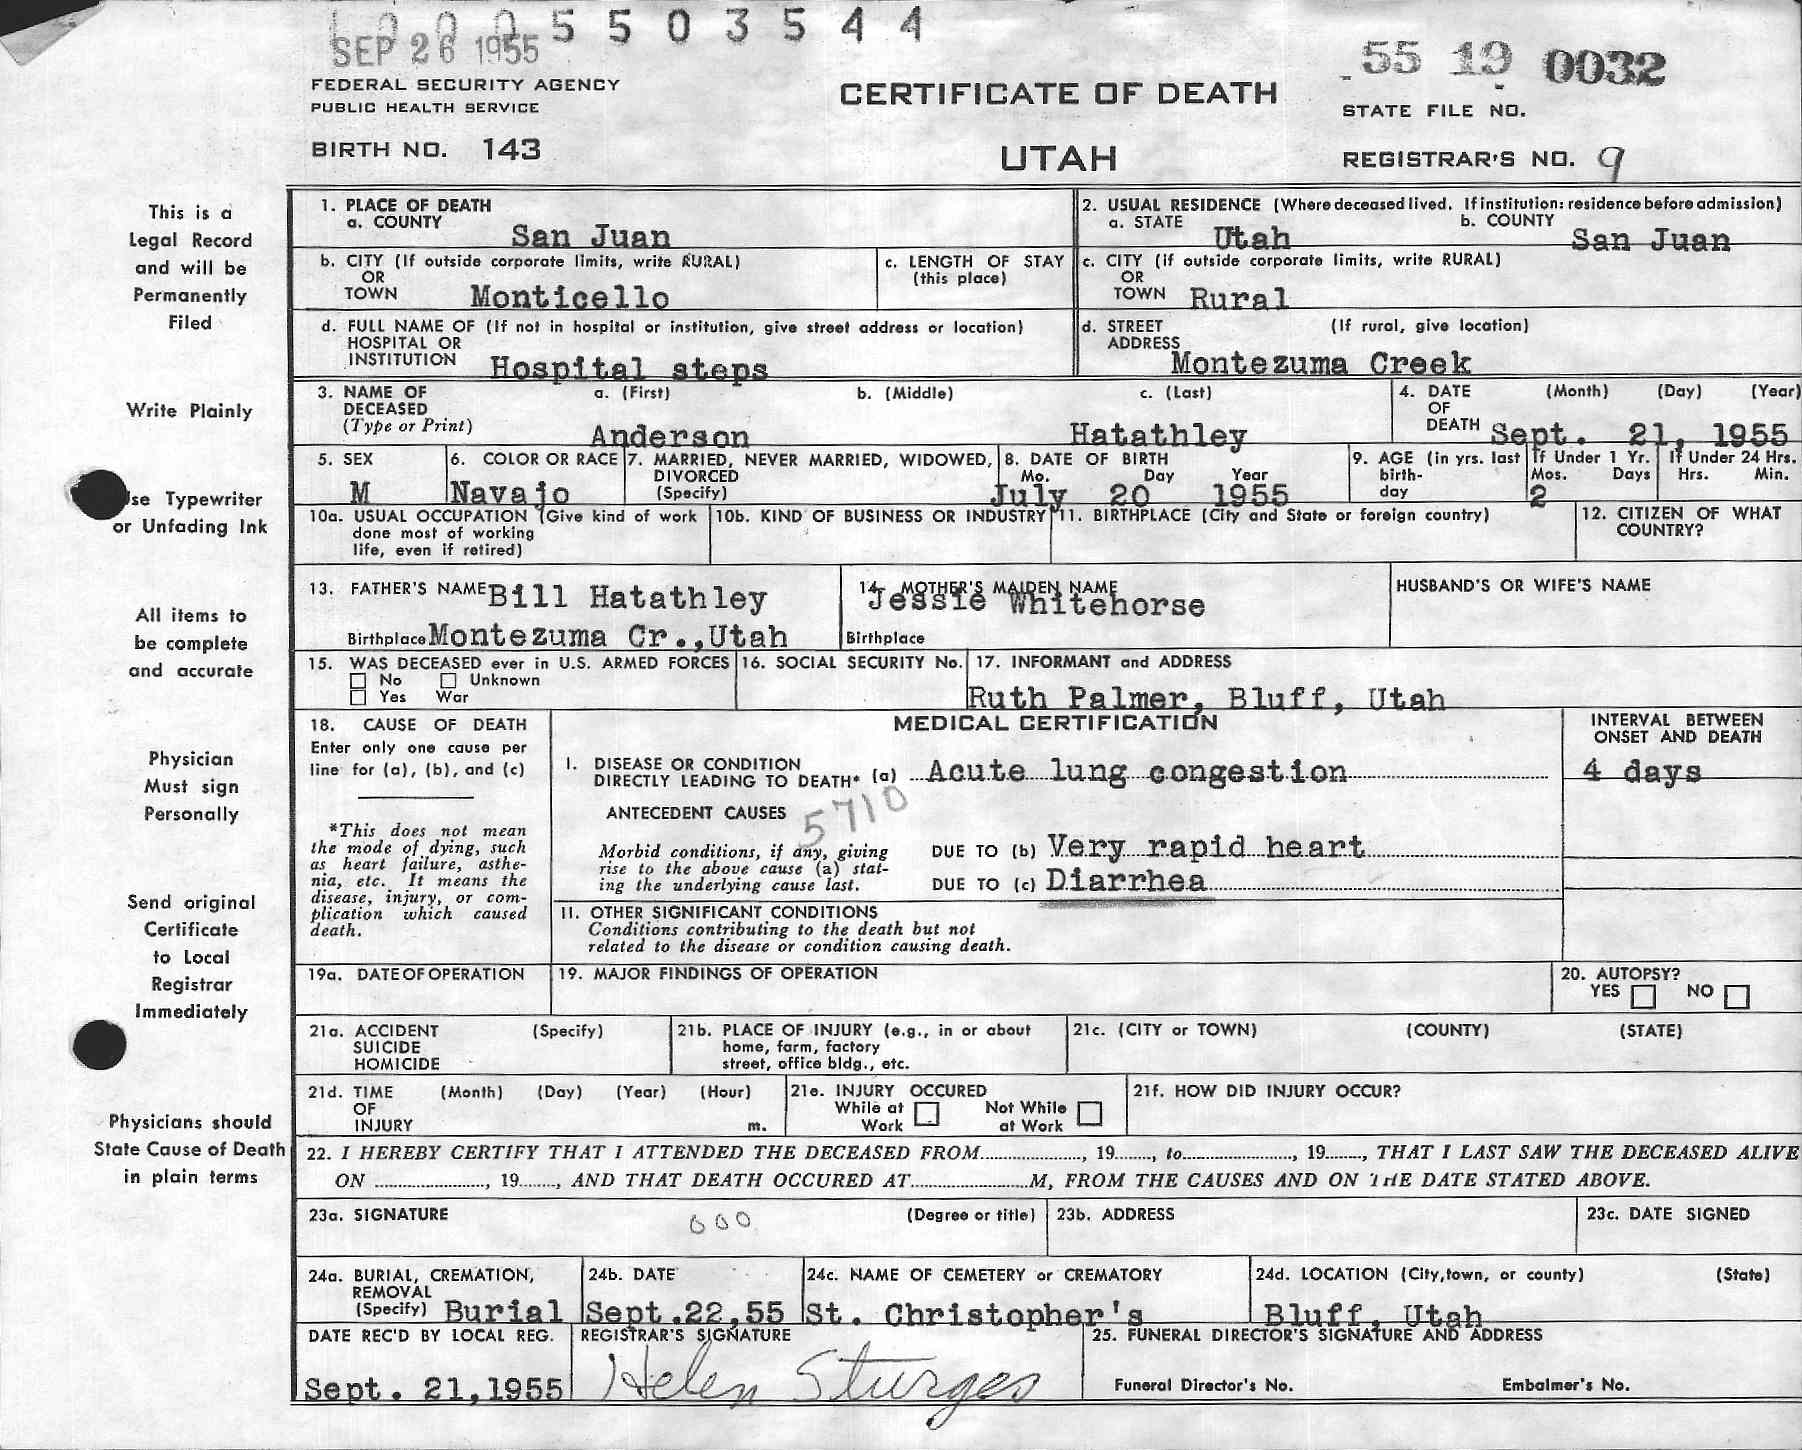 1 0 0 0 5 5 0 3 5 4 4
SEP 26 1955
55 19 0032
FEDERAL SECURITY AGENCY
PUBLIC HEALTH SERVICE
CERTIFICATE OF DEATH
STATE FILE NO.
BIRTH NO. 143
UTAH
REGISTRAR'S NO. 9
This is a
Legal Record
and will be
Permanently
Filed
Write Plainly
se Typewriter
or Unfading Ink
All items to
be complete
and accurate
Physician
Must sign
Personally
Send original
Certificate
to Local
Registrar
Immediately
Physicians should
State Cause of Death
in plain terms
1. PLACE OF DEATH
a. COUNTY San Juan
2. USUAL RESIDENCE (Where deceased lived. If institution: residence before admission)
a. STATE Utah b. COUNTY San Juan
b. CITY (If outside corporate limits, write RURAL)
OR
TOWN Monticello
c. LENGTH OF STAY
(this place)
c. CITY (If outside corporate limits, write RURAL)
OR
TOWN Rural
d. FULL NAME OF (If not in hospital or institution, give street address or location)
HOSPITAL OR
INSTITUTION Hospital steps
d. STREET (If rural, give location)
ADDRESS
Montezuma Creek
3. NAME OF a. (First) b. (Middle) c. (Last)
DECEASED
(Type or Print) Anderson Hatathley
4. DATE (Month) (Day) (Year)
OF
DEATH Sept. 21, 1955
5. SEX
M
6. COLOR OR RACE
Navajo
7. MARRIED, NEVER MARRIED, WIDOWED,
DIVORCED
(Specify)
8. DATE OF BIRTH
Mo. Day Year
July 20 1955
9. AGE (in yrs. last
birth-
day
If Under 1 Yr.
Mos. Days
2
If Under 24 Hrs.
Hrs. Min.
10a. USUAL OCCUPATION (Give kind of work
done most of working
life, even if retired)
10b. KIND OF BUSINESS OR INDUSTRY
11. BIRTHPLACE (City and State or foreign country)
12. CITIZEN OF WHAT
COUNTRY?
13. FATHER'S NAME Bill Hatathley
Birthplace Montezuma Cr.,Utah
14. MOTHER'S MAIDEN NAME
Jessie Whitehorse
Birthplace
HUSBAND'S OR WIFE'S NAME
15. WAS DECEASED ever in U.S. ARMED FORCES
No Unknown
Yes War
16. SOCIAL SECURITY No.
17. INFORMANT and ADDRESS
Ruth Palmer, Bluff, Utah
18. CAUSE OF DEATH
Enter only one cause per
line for (a), (b), and (c)
*This does not mean
the mode of dying, such
as heart failure, asthe-
nia, etc. It means the
disease, injury, or com-
plication which caused
death.
MEDICAL CERTIFICATION
INTERVAL BETWEEN
ONSET AND DEATH
I. DISEASE OR CONDITION
DIRECTLY LEADING TO DEATH* (a) Acute lung congestion
4 days
ANTECEDENT CAUSES 5710
Morbid conditions, if any, giving
rise to the above cause (a) stat-
ing the underlying cause last.
DUE TO (b) Very rapid heart
DUE TO (c) Diarrhea
II. OTHER SIGNIFICANT CONDITIONS
Conditions contributing to the death but not
related to the disease or condition causing death.
19a. DATE OF OPERATION
19. MAJOR FINDINGS OF OPERATION
20. AUTOPSY?
YES NO
21a. ACCIDENT (Specify)
SUICIDE
HOMICIDE
21b. PLACE OF INJURY (e.g., in or about
home, farm, factory
street, office bldg., etc.
21c. (CITY or TOWN) (COUNTY) (STATE)
21d. TIME (Month) (Day) (Year) (Hour)
OF
INJURY m.
21e. INJURY OCCURED
While at Not While
Work at Work
21f. HOW DID INJURY OCCUR?
22. I HEREBY CERTIFY THAT I ATTENDED THE DECEASED FROM............, 19......, to............, 19......, THAT I LAST SAW THE DECEASED ALIVE
ON ............, 19......, AND THAT DEATH OCCURED AT............M, FROM THE CAUSES AND ON THE DATE STATED ABOVE.
23a. SIGNATURE 000 (Degree or title)
23b. ADDRESS
23c. DATE SIGNED
24a. BURIAL, CREMATION,
REMOVAL
(Specify) Burial
24b. DATE
Sept.22,55
24c. NAME OF CEMETERY or CREMATORY
St. Christopher's
24d. LOCATION (City, town, or county) (State)
Bluff, Utah
DATE REC'D BY LOCAL REG.
Sept. 21,1955
REGISTRAR'S SIGNATURE
Helen Sturges
25. FUNERAL DIRECTOR'S SIGNATURE AND ADDRESS
Funeral Director's No. Embalmer's No.